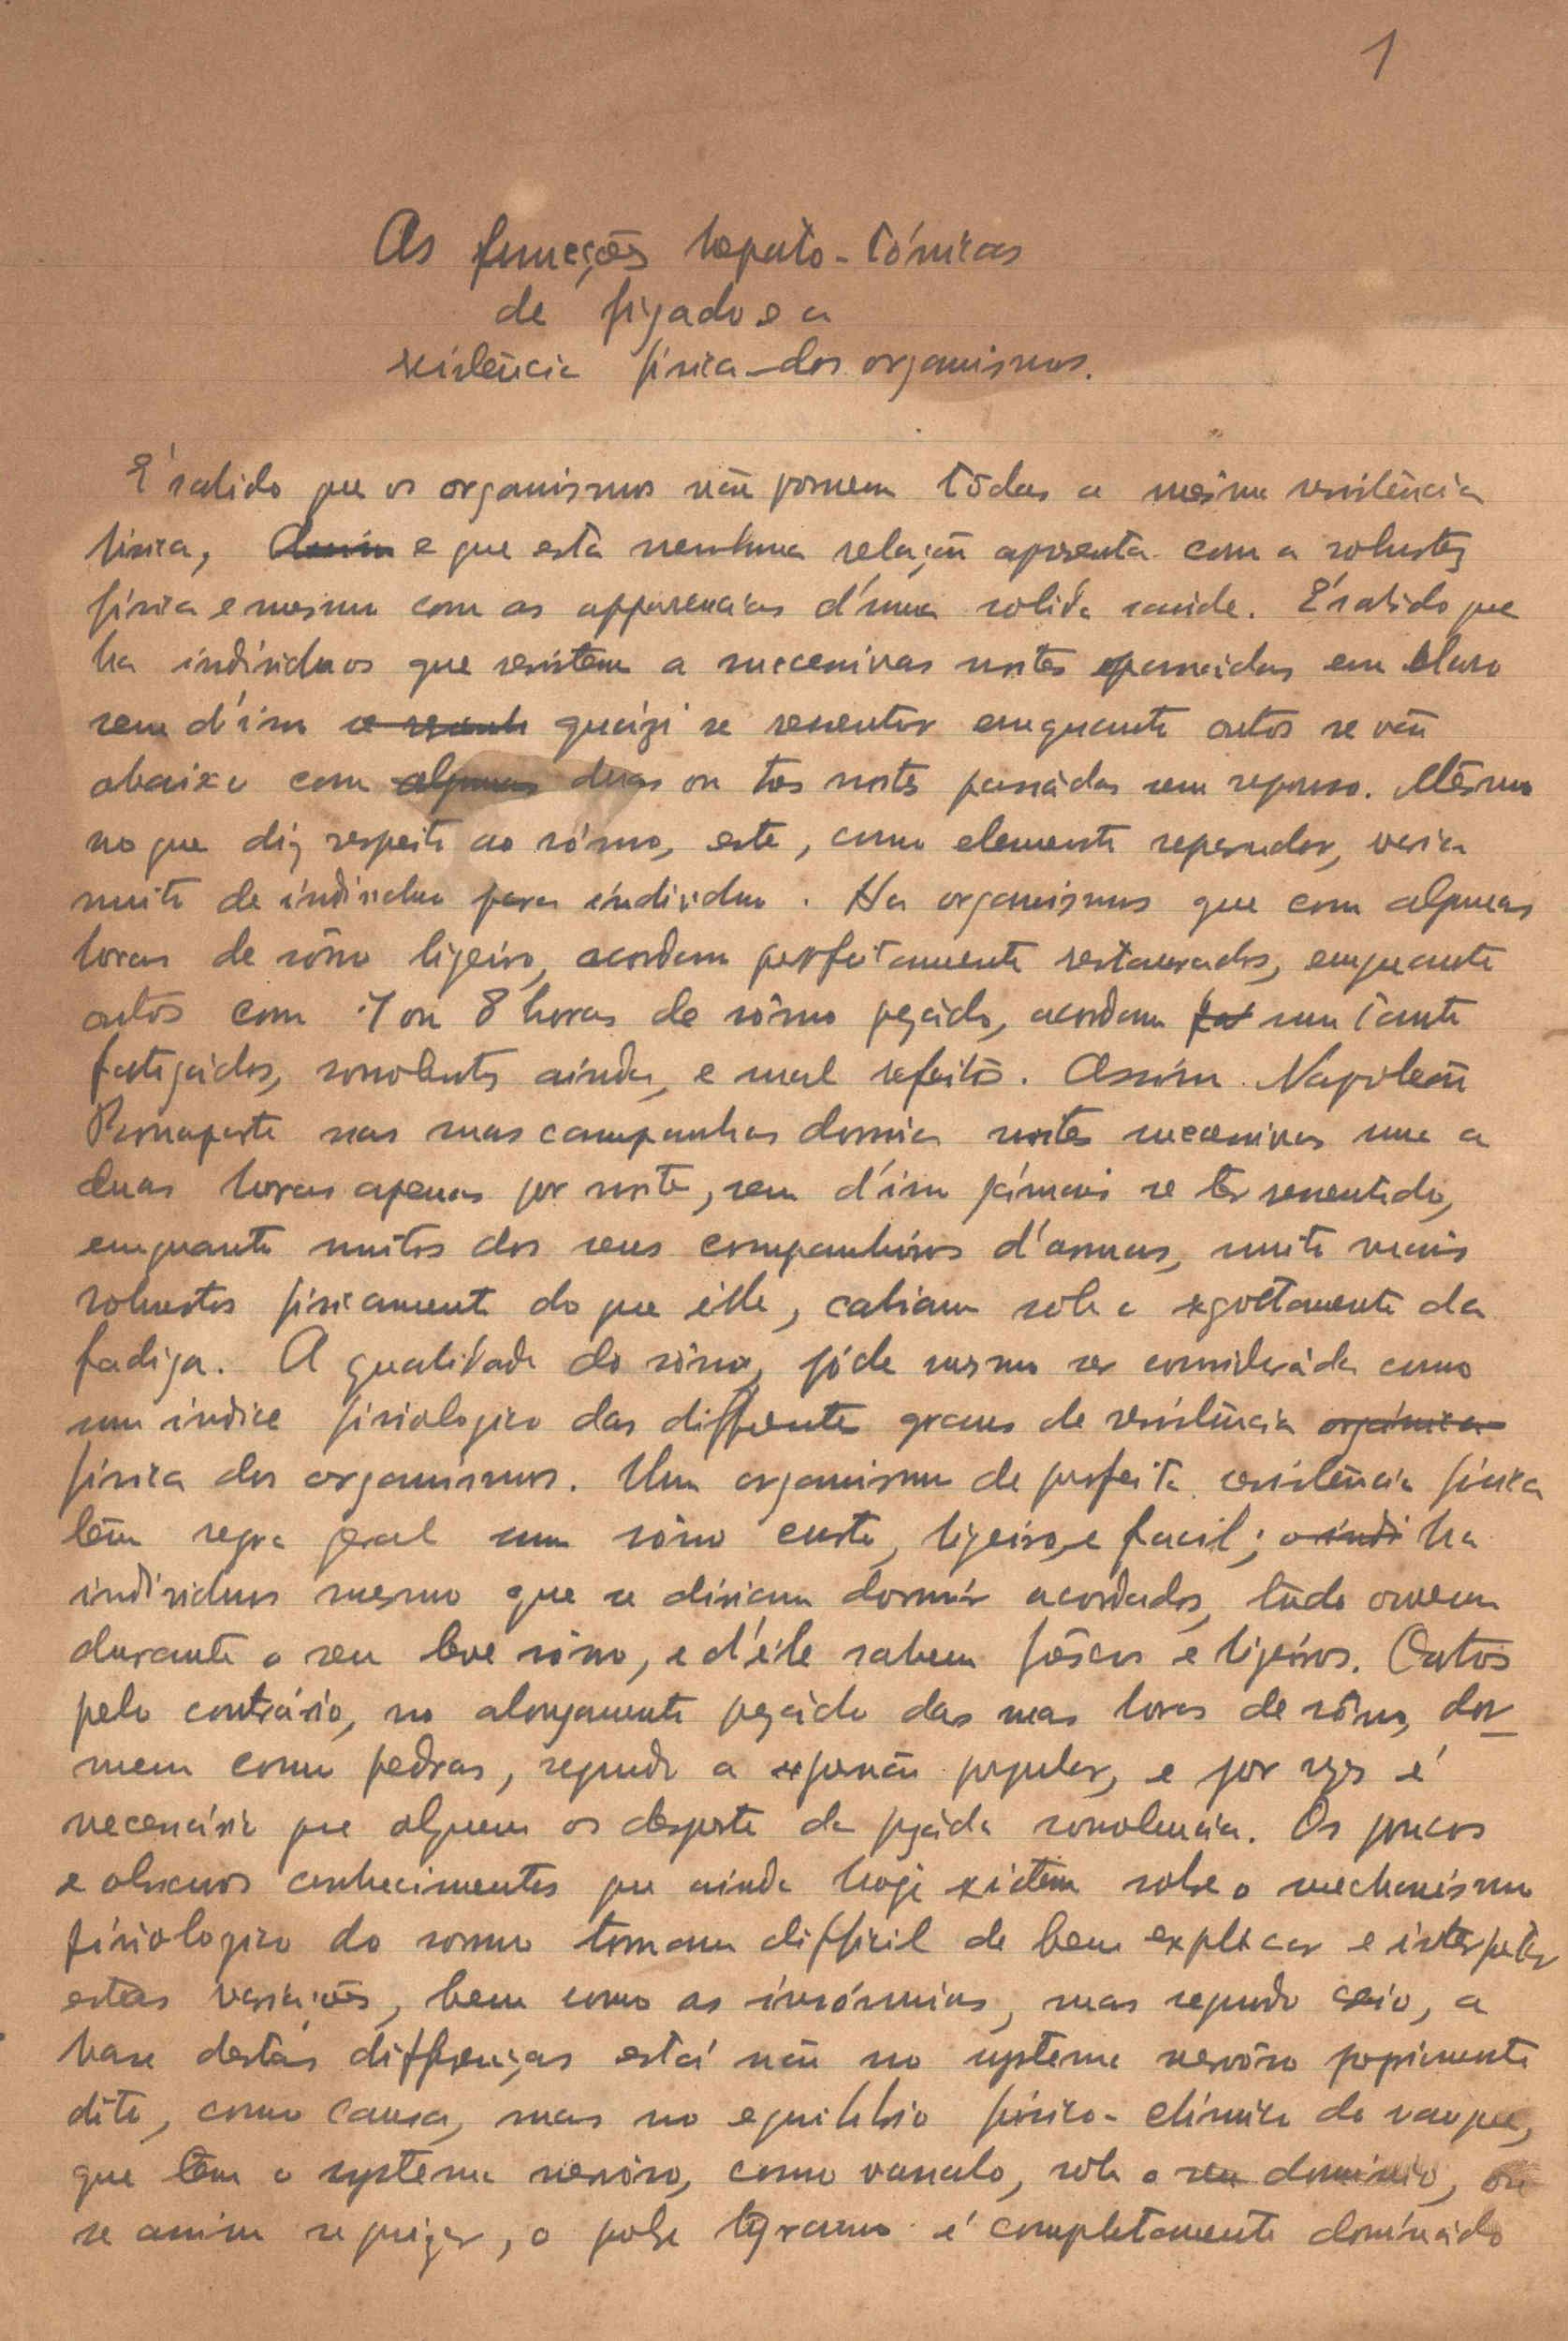 1
As funcções hepato-tónicas
de figado e a
resistência física dos organismos.
E' sabido que os organismos não possuem tôdos a mêsma resistência
física, Assim e que esta nenhuma relação apresenta com a robustez
física e mesmo com as apparencias d'uma solida saude. E' sabido que
ha indivíduos que resistem a successivas noites passadas em claro
sem d'isso quási se resentir emquanto outros se vão
abaixo com algumas duas ou tres noites passádas sem repouso. Mêsmo
no que diz respeito ao sômno, este, como elemento reparador, varia
muito de indivíduo para indivíduo. Ha organismos que com algumas
horas de sôno ligeiro, acordam perfeitamente restaurados, emquanto
outros com 7 ou 8 horas de sômno pezádo, acordam um tanto
fatigádos, sonolentos ainda, e mal refeitos. Assim Napoleão
Bonaparte nas suas campanhas dormia noites successivas uma a
duas horas apenas por noite, sem d'isso jámais se ter resentido,
emquanto muitos dos seus companheiros d'armas, muito mais
robustos fisicamente do que êlle, cahiam sob o exgottamento da
fadiga. A qualidade do sôno, póde mesmo ser consideráda como
um indice fisiologico dos differentes graus de resistência orgánica
física dos organismos. Um organismo de perfeita resistência física
têm regra geral um sôno curto, ligeiro, e facil; o indi ha
indivíduos mesmo que se diriam dormir acordados, tudo ouvem
durante o seu leve sôno, e d'êle sahem frêscos e ligeiros. Outros
pelo contrário, no alongamento pezádo das suas horas de sôno, dor-
mem como pedras, segundo a expressão popular, e por vezes é
necessário que alguem os desperte da pezáda sonolencia. Os poucos
e obscuros conhecimentos que ainda hoje existem sobre o mechanismo
fisiologico do somno tornam difficil de bem explicar e interpretar
estas variações, bem como as insómnias, mas segundo creio, a
base destas differenças está não no systema nervôso propriamente
dito, como causa, mas no equilibrio físico-chímico do sangue,
que tem o systema nervôso, como vassalo, sob o seu dominio, ou
se assim se quizer, o pobre tyranno é completamente domínádo